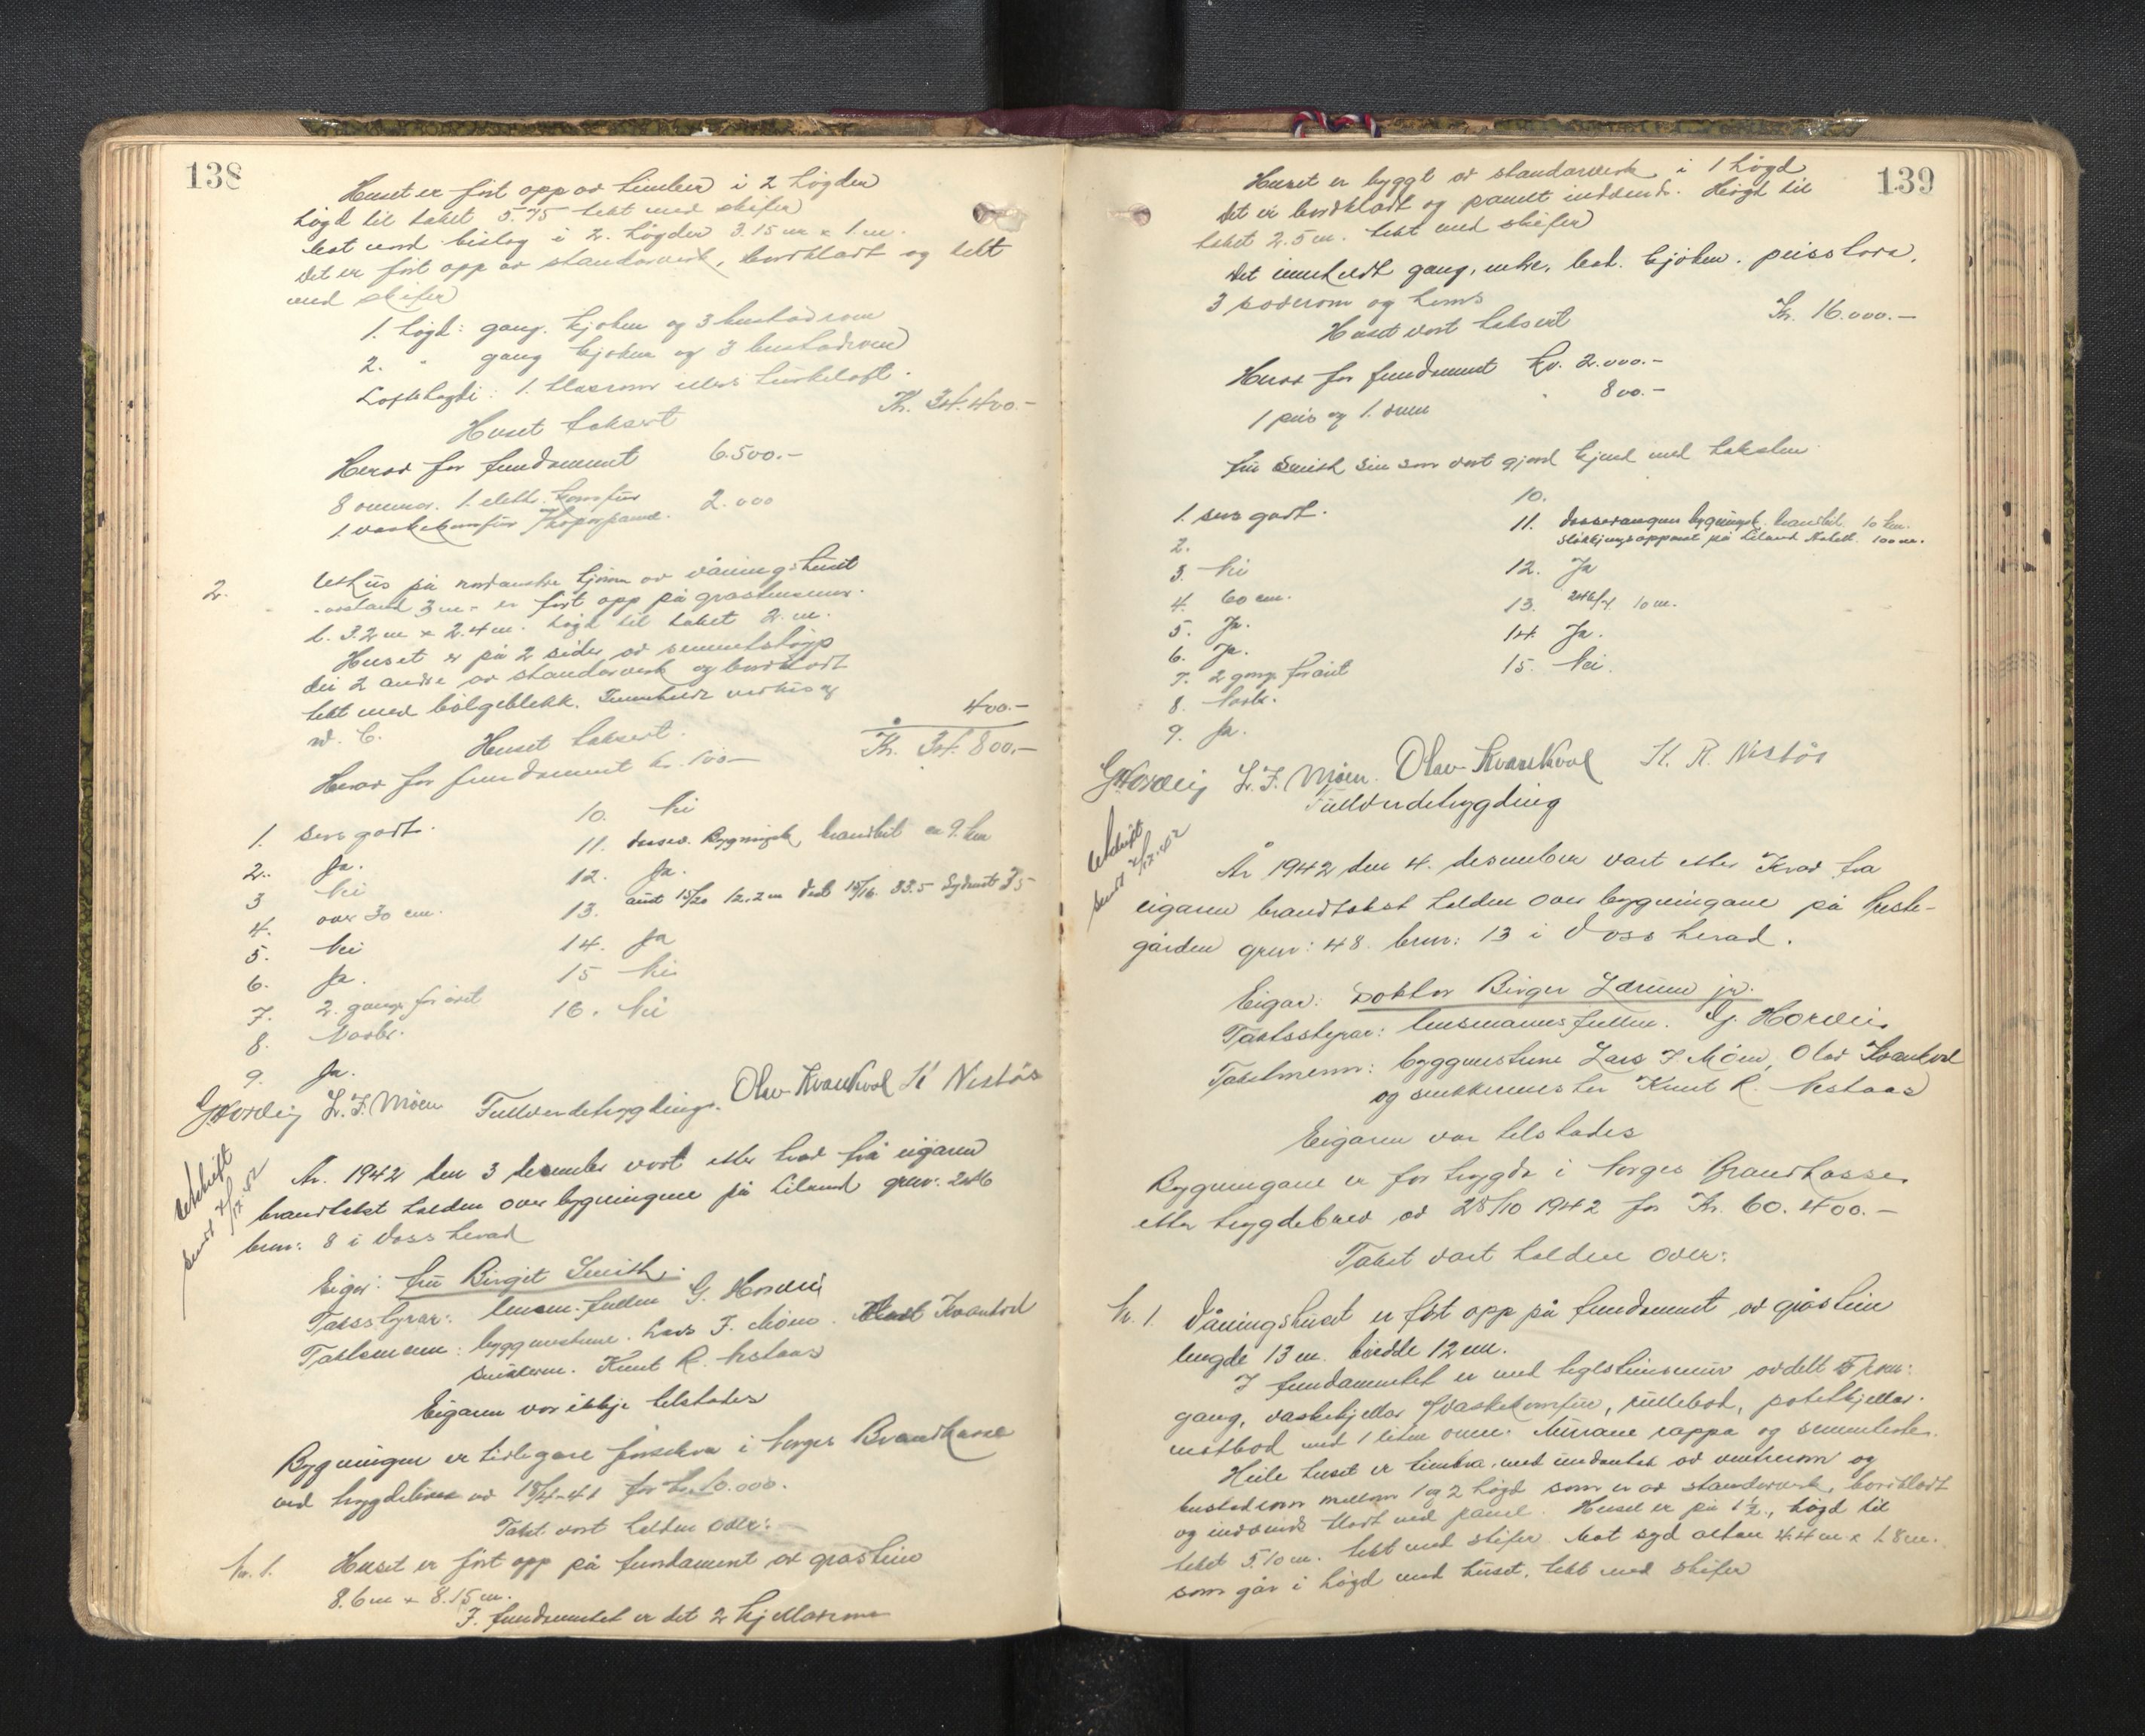 138
Huset er ført opp av timber i 2 høgder
høgd til taket 5.75 tekt med skifer
Mot nord bislag i 2. høgder 3.15 m x 1. m.
Det er ført opp av standarverk, bordkladt og tekt
med skifer
1. høgd: gang. kjøken og 3 bustadrom
2. " gang kjøken og 3 bustadrom
Loftshøgdi: 1. kvarrom elles turkeloft.
Huset taksert
Kr. 34.400.-
Herav for fundament 6.500.-
8 omnar. 1. elekt. komfur
1 vaskekomfur m/koparpanne. 2.000
2. Uthus på nordaustre hjørna av våningshuset
avstand 3 m - er ført opp på gråsteinsmur.
l. 3.2 m x 2.4 m. høgd til taket 2. m.
Huset er på 2 sider av sementstøyp
dei 2 andre av standarverk og bordkladt
tekt med bølgeblekk. Inneheld vedhus og
W. C.
400.-
Huset taksert.
Kr. 34.800.-
Herav for fundament kr. 100.-
1. Svs godt. 10. Nei
2. Ja. 11. Vossev. Bygningsk, brandbil ca 9. km
3 Nei 12. Ja.
4. over 30 cm. 13. aust 15/20 12.2 m Vest 15/16. 33.5
5. Nei 14. Ja
6. Ja. 15 Nei
7. 2. gang for året 16. Nei
8. Norsk.
9. Ja.
G Horvei L. F. Møen Olav Kvarekval K Nestås
Fullverdetrygding.
Utskrift
sendt 7/12.42
År. 1942 den 3 desember vart etter krav frå eigaren
brandtakst halden over bygningane på Liland grnr: 246
brnr: 8 i Voss herad
Eigar: fru Birgit Smith.
Takstyrar: lensm. fullm G. Horvei
Takstmenn: byggmeistrane. Lars F. Møen. Olav Kvarekval
snikkerm. Knut R. Nestaas
Eigaren var ikkje tilstades
Bygningen er tidlegare forsikra i Norges Brandkasse
ved trygdebrev av 18/4-41 for kr. 10.000.
Takst vart halden over:
Nr. 1. Huset er ført opp på fundament av gråstein
8.6 m x 8.15 m.
I. fundamentet er det 2 kjellarrom
139
Huset er byggt av standarverk i 1 høgd
Det er bordkladt og panelt innvendt. Høgd til
taket 2.5 m. tekt med skifer
Det inneheldt gang, entre, bad. kjøken. peisstova,
3 soverom og hems
Huset vart taksert Kr. 16.000.-
Herav for fundament Kr. 2.000.-
1 peis og 1. omn " 800.-
Fru Smith sin son vart gjord kjend med taksten.
1. svs godt. 10.
2. 11. Vossevangen bygningsk. brandbil. 10 km.
sløkkjingsapparat på Liland Hotell. 100 m.
3. Nei 12. Ja
4. 60 cm. 13. 246/7 10 m.
5. Ja. 14. Ja.
6. Ja. 15. Nei.
7. 2 gang for året
8. Norsk.
9. Ja.
G Horvei L. F. Møen. Olav Kvarekval K. R. Nestås
Fullverdetrygding
Utskrift
sendt 7/12.42
År 1942 den 4. desember vart etter krav fra
eigaren brandtakst halden over bygningane på Preste-
gården grnr: 48 brnr: 13 i Voss herad.
Eigar: Doktor Birger Lærum jr.
Takstsstyrar: lensmannsfullm. G. Horvei
Takstmenn: byggmeistrane Lars F. Møen, Olav Kvarekval
og snikkermester Knut R. Nestaas
Eigaren var tilstades
Bygningane er for trygda i Norges Brandkasse
etter trygdebrev av 28/10 1942 for Kr. 60.400.-
Takst vart halden over:
Nr. 1. Våningshuset er ført opp på fundament av gråstein
lengde 13 m. breidde 12 m.
I fundamentet er med teglsteinsmur avdelt 5 rom:
gang, vaskekjellar m/vaskekomfur, rullebod, potetkjellar.
matbod med 1 liten omn. Murane rappa og sementerte.
Heile huset er timbra, med undantak av venterom og
bustadrom mellom 1 og 2 høgd som er av standarverk, bordkladt
og innvendt kladt med panel. Huset er på 1 1/2, høgd til
taket 5.10 m. tekt med skifer Mot syd altan 4.4 m x 1.8 m.
som går i høgd med huset, tekt med skifer